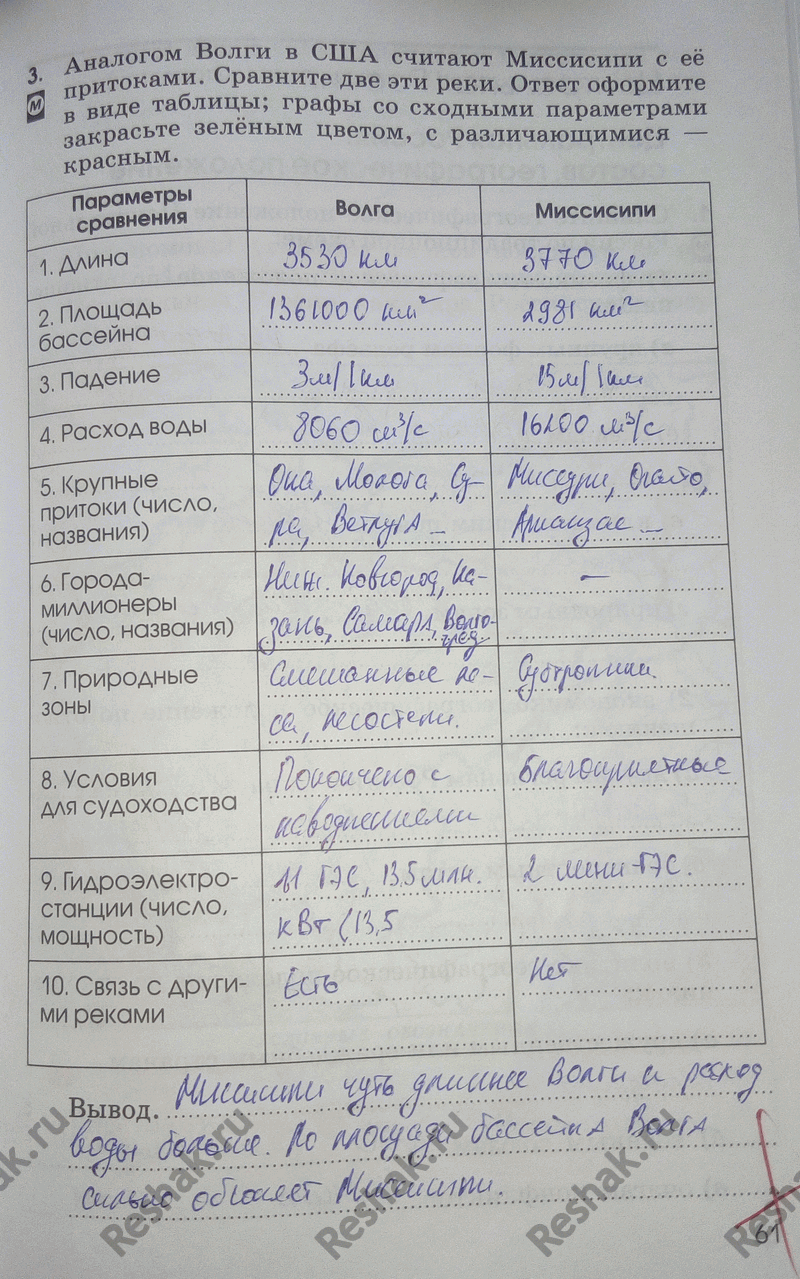 3. Аналогом Волги в США считают Миссисипи с её
М притоками. Сравните две эти реки. Ответ оформите
в виде таблицы; графы со сходными параметрами
закрасьте зелёным цветом, с различающимися —
красным.
Параметры сравнения
Волга
Миссисипи
1. Длина
3530 км
3770 км
2. Площадь
бассейна
1361000 км²
2981 км²
3. Падение
3м/1км
15м/1км
4. Расход воды
8060 м³/с
16200 м³/с
5. Крупные
притоки (число,
названия)
Ока, Молога, Су-
ра, Ветлуга
Миссури, Огайо,
Арканзас
6. Города-
миллионеры
(число, названия)
Ниж. Новгород, Ка-
зань, Самара, Волго-
град
–
7. Природные
зоны
Смешанные ле-
са, лесостепи.
Субтропики.
8. Условия
для судоходства
Покончено с
наводнениями
Благоприятные
9. Гидроэлектро-
станции (число,
мощность)
11 ГЭС, 13,5 млн.
кВт (13,5
2 мини-ГЭС.
10. Связь с други-
ми реками
Есть
Нет
Вывод. Миссисипи чуть длиннее Волги и расход
воды больше. По площади бассейна Волга
сильно обгоняет Миссисипи.
61
Reshak.ru
Reshak.ru
Reshak.ru
ak.ru